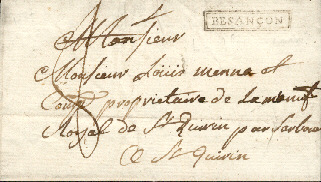 BESANÇON
Monsieur
Monsieur Louis menna et
Comp. proprietaire de La manuf
Royal de St Quirin par Sarbourg
a St Quirin